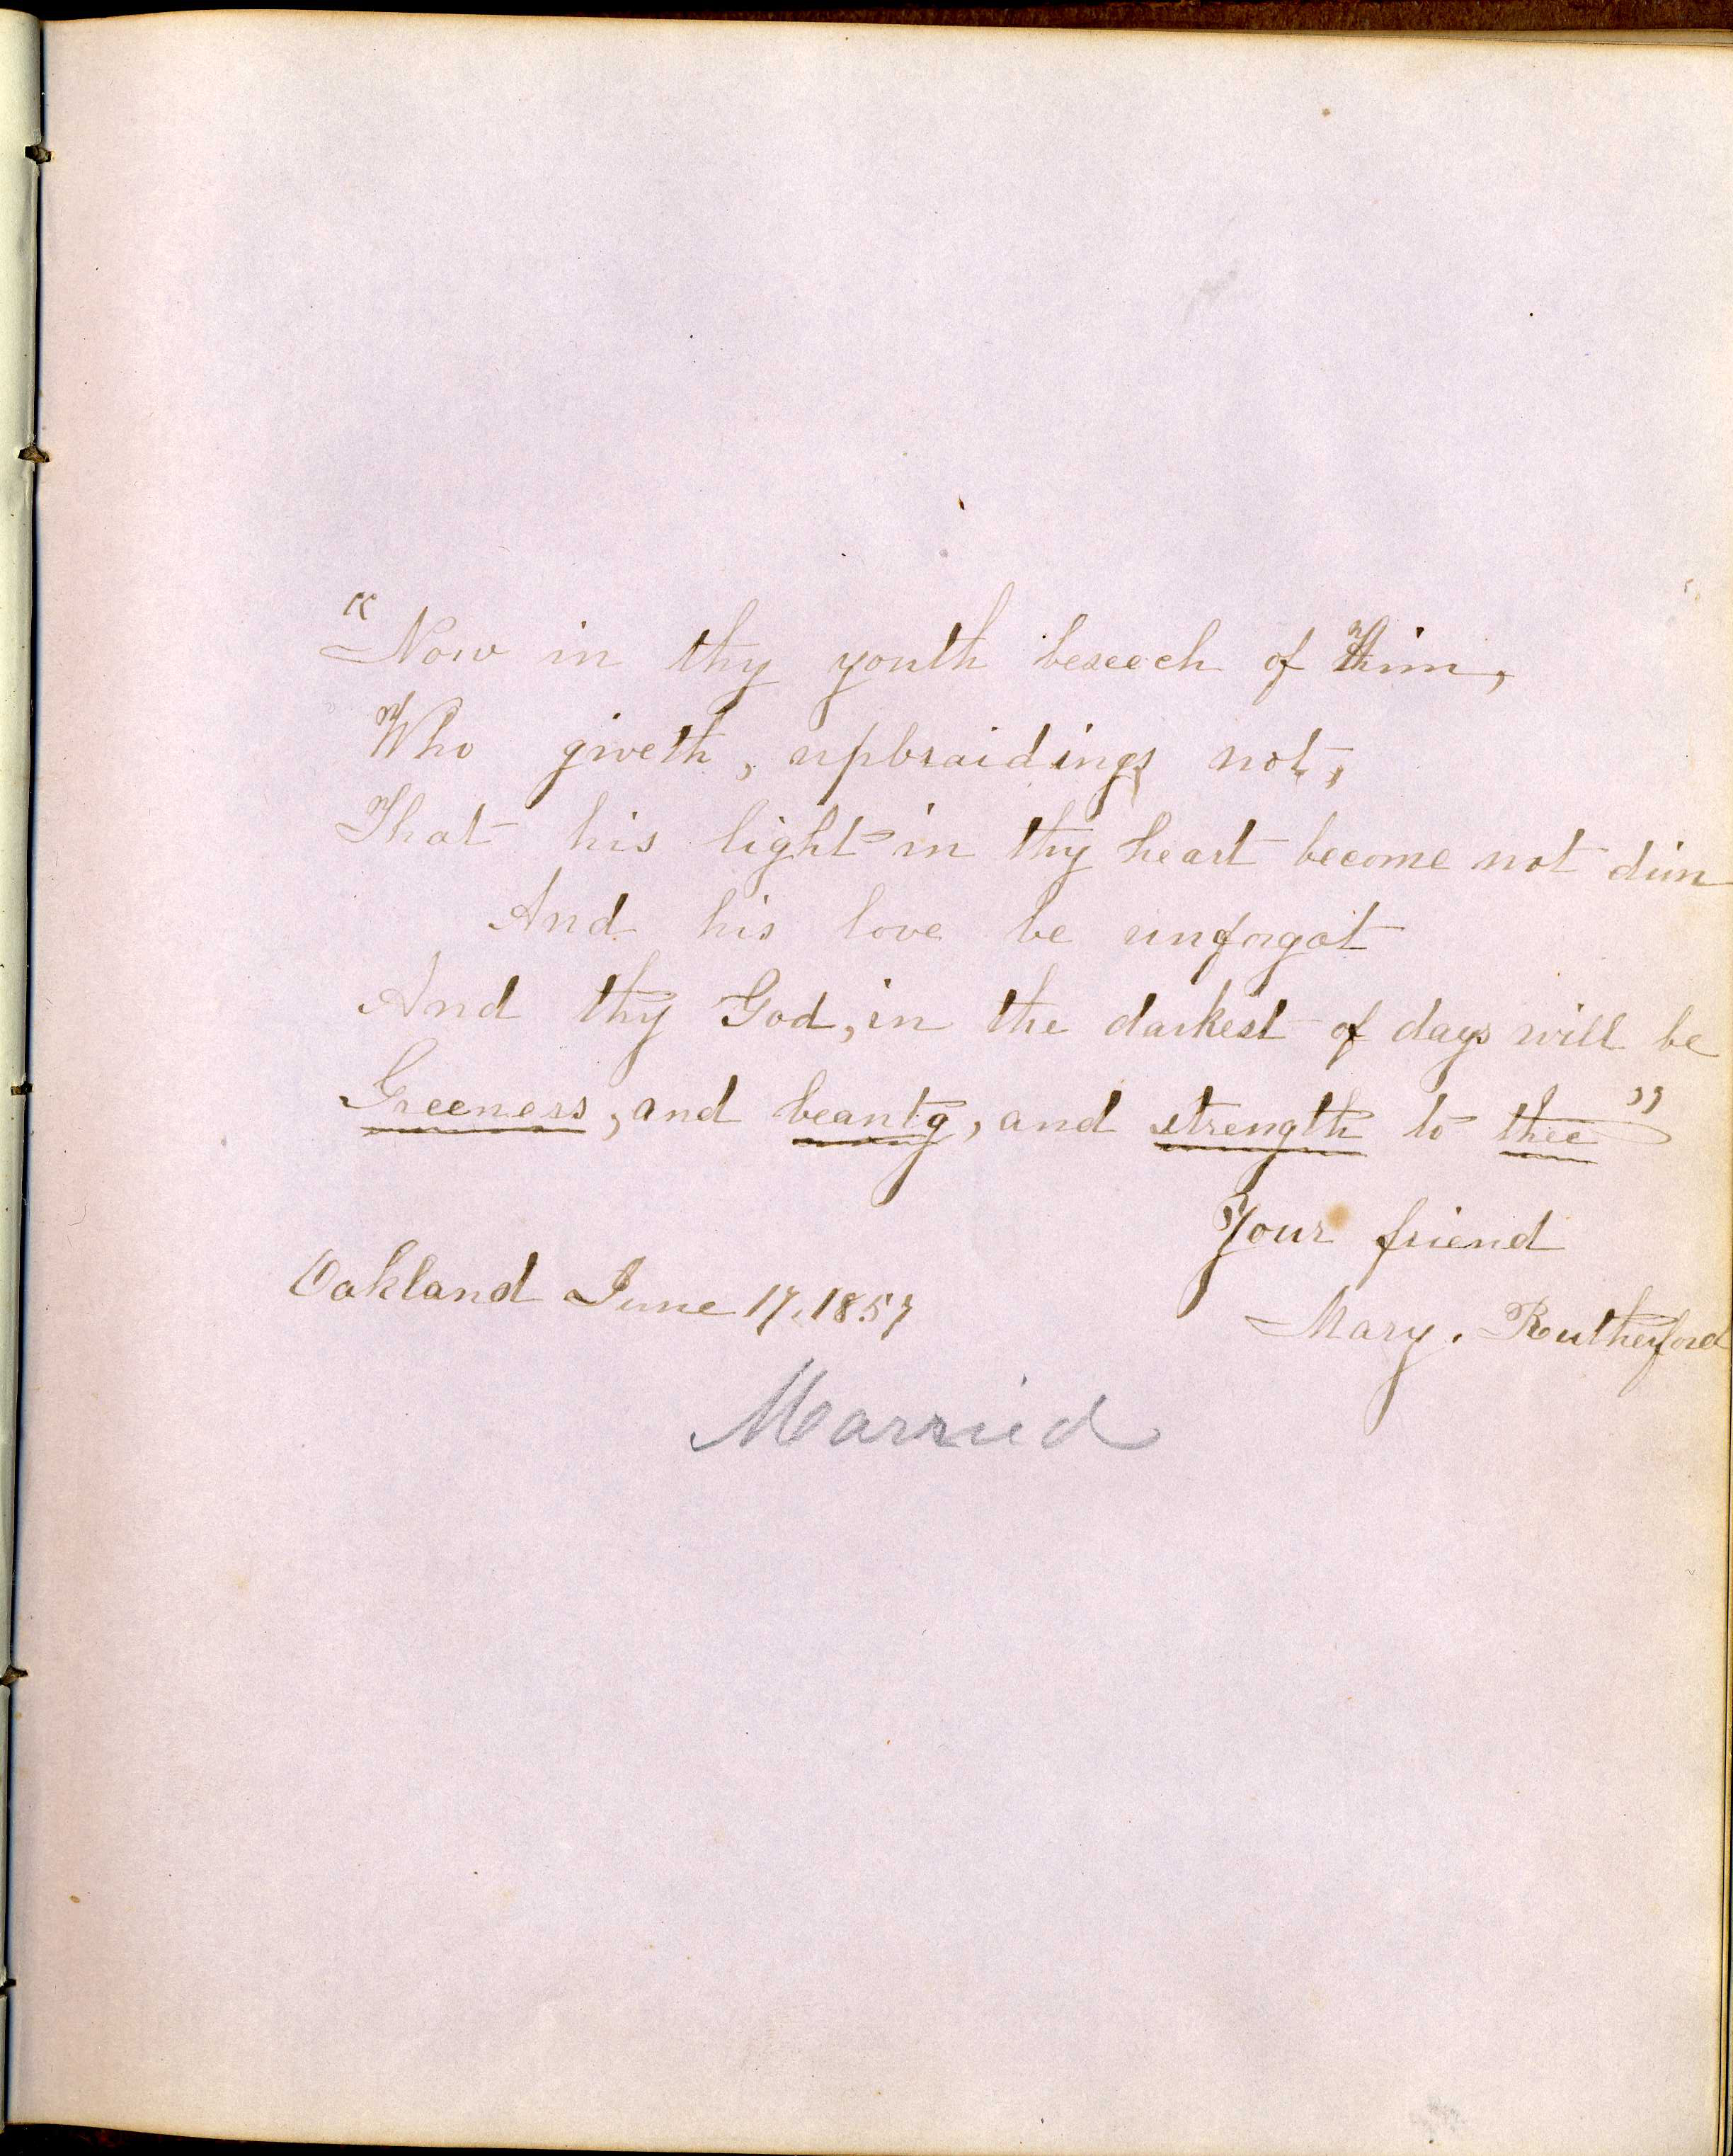 "Now in thy youth beseech of Him,
Who giveth, upbraidings not,
That his light in thy heart become not dim
And his love be unforgot
And thy God, in the darkest of days will be
Greeness, and beauty, and strength to thee"
Your friend
Oakland June 17, 1857
Mary. Rutherford
Married